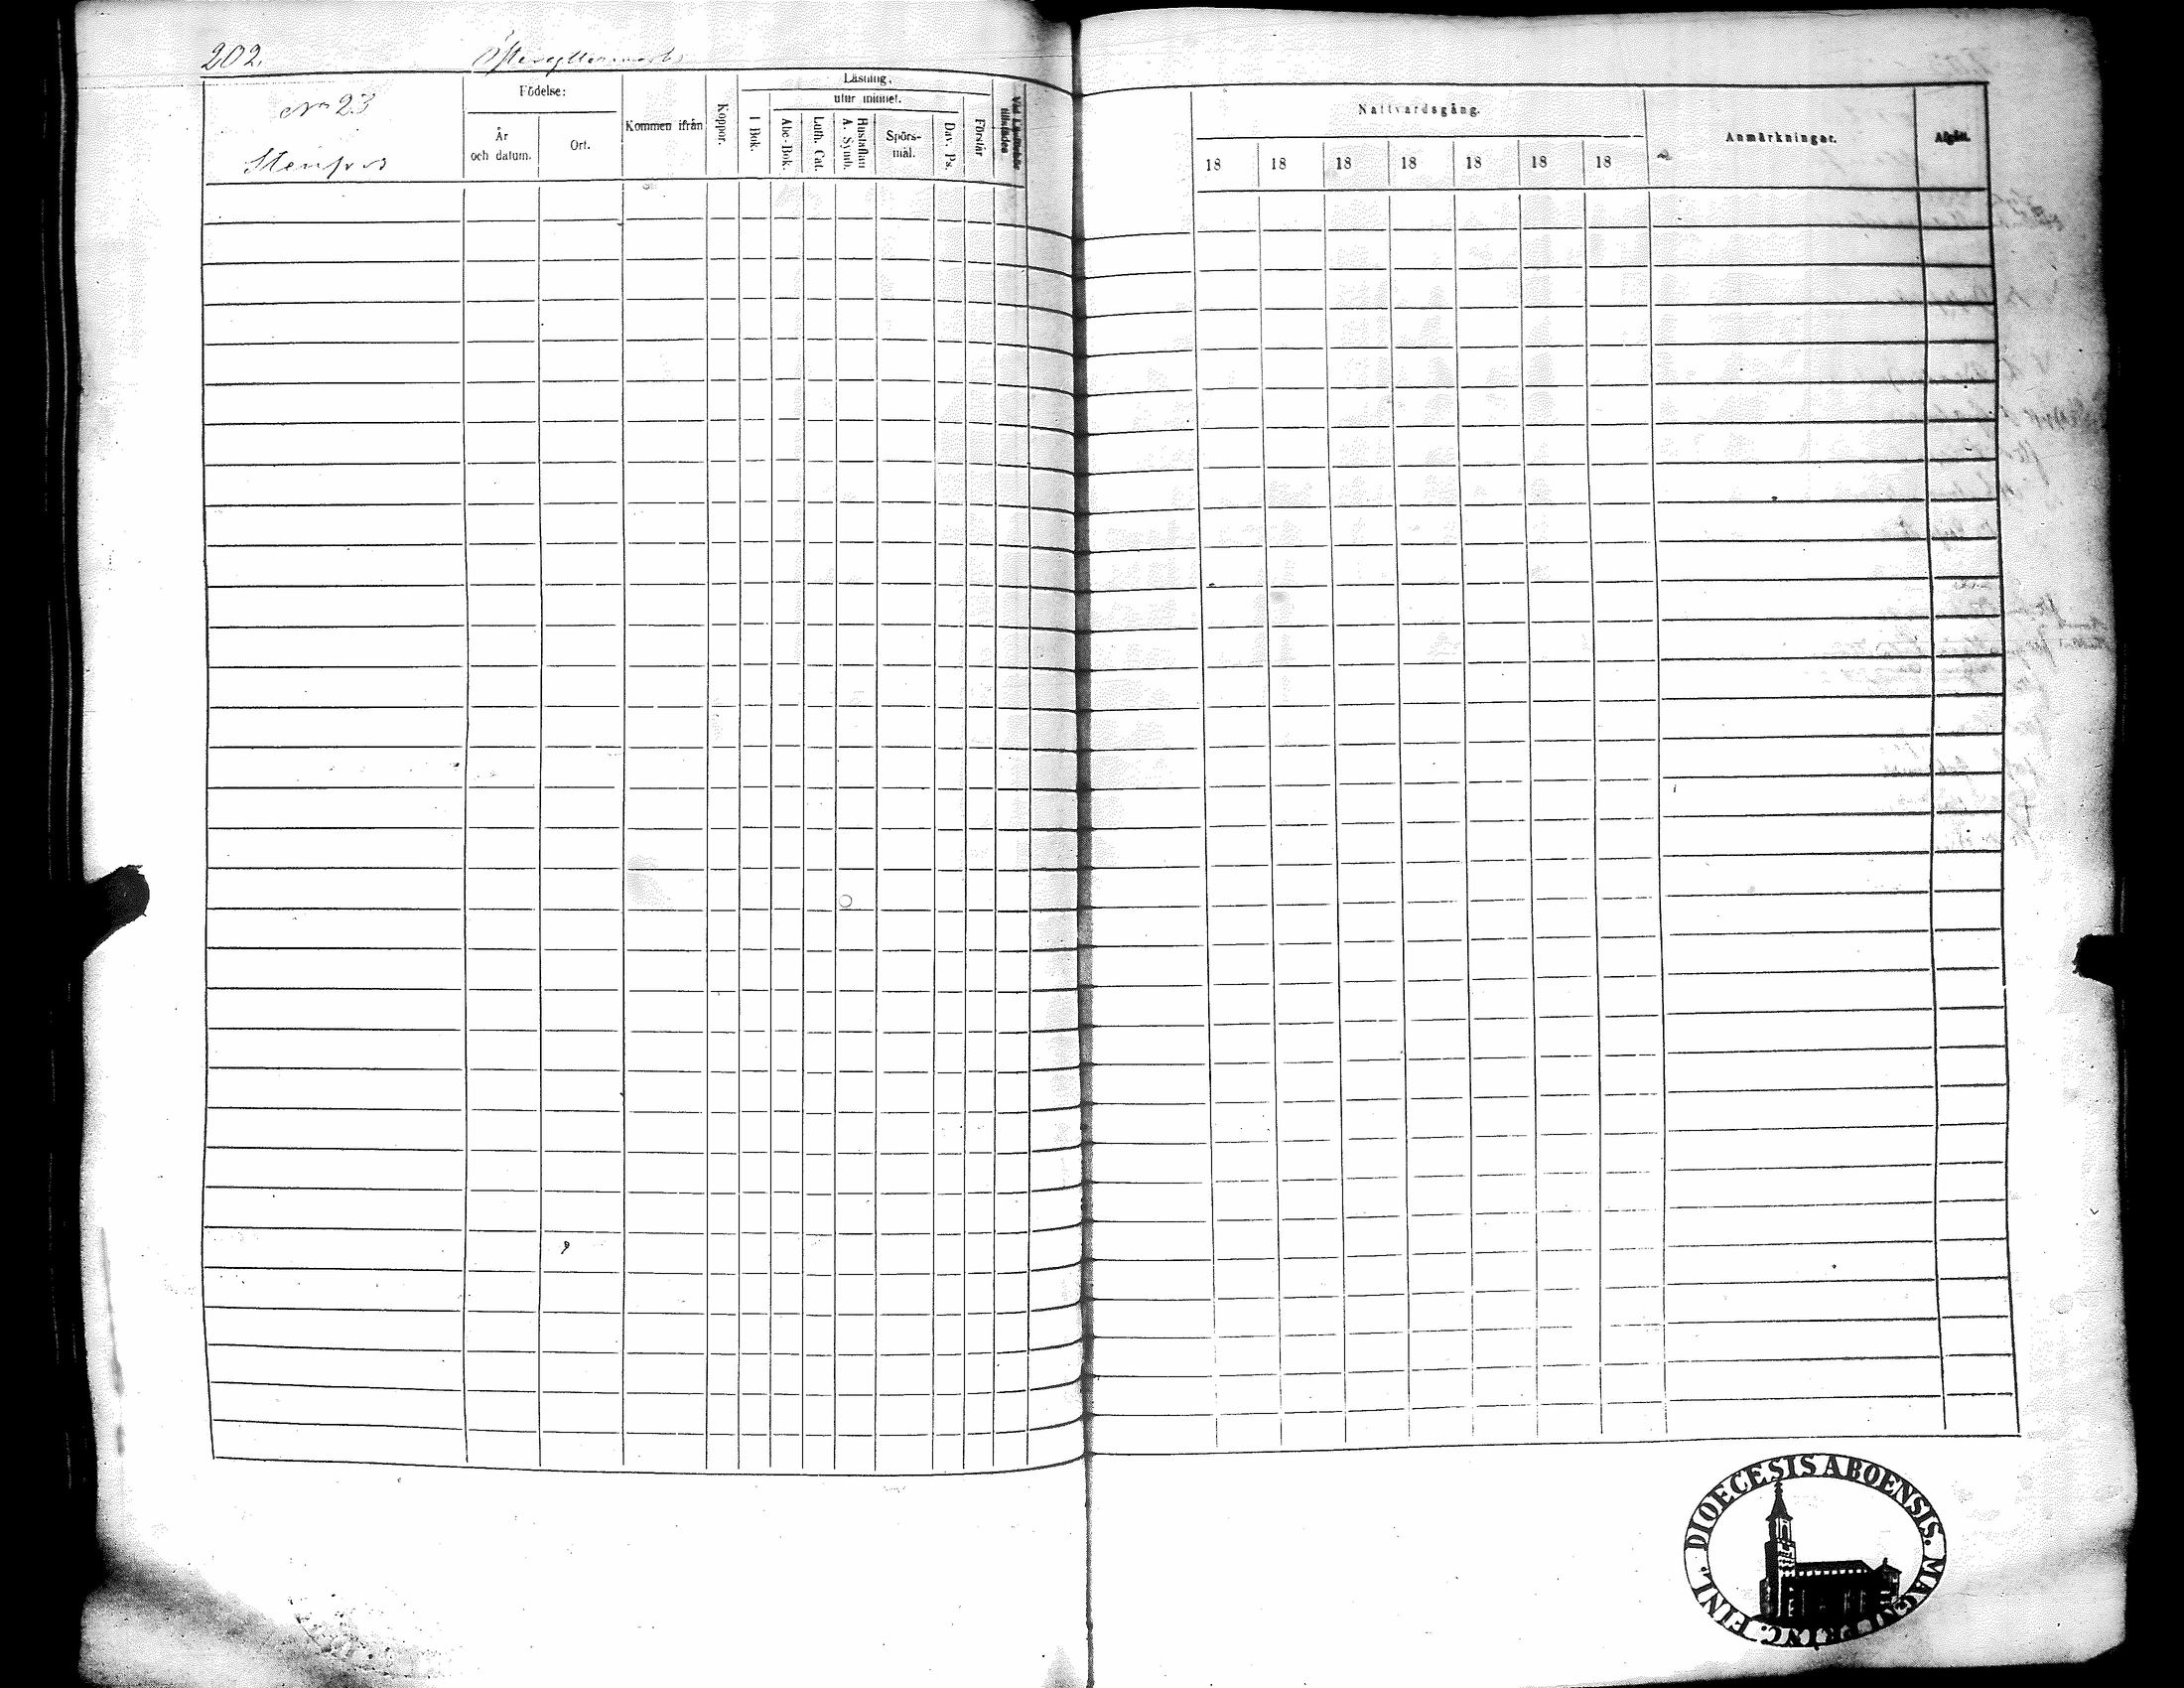 202. Östergyllermark
No 23
Stenfors
Födelse:
År
och datum.
Ort.
Kommen ifrån
Koppor.
Läsning.
utur minnet.
I Bok.
Abc-Bok.
Luth. Cat.
Hustaflan
A. Symb.
Spörs-
mål.
Dav. Ps.
Förstår
Nattvardsgång.
18 18 18 18 18 18 18
Anmärkningar.
Afgått.
DIOECESIS ABOENSIS. MAGNI PRINC. FINL.